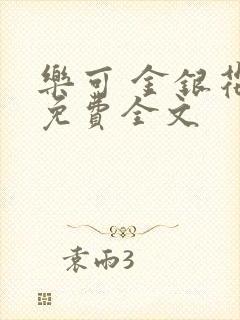 樂可 金銀花
免費全文
袁雨3